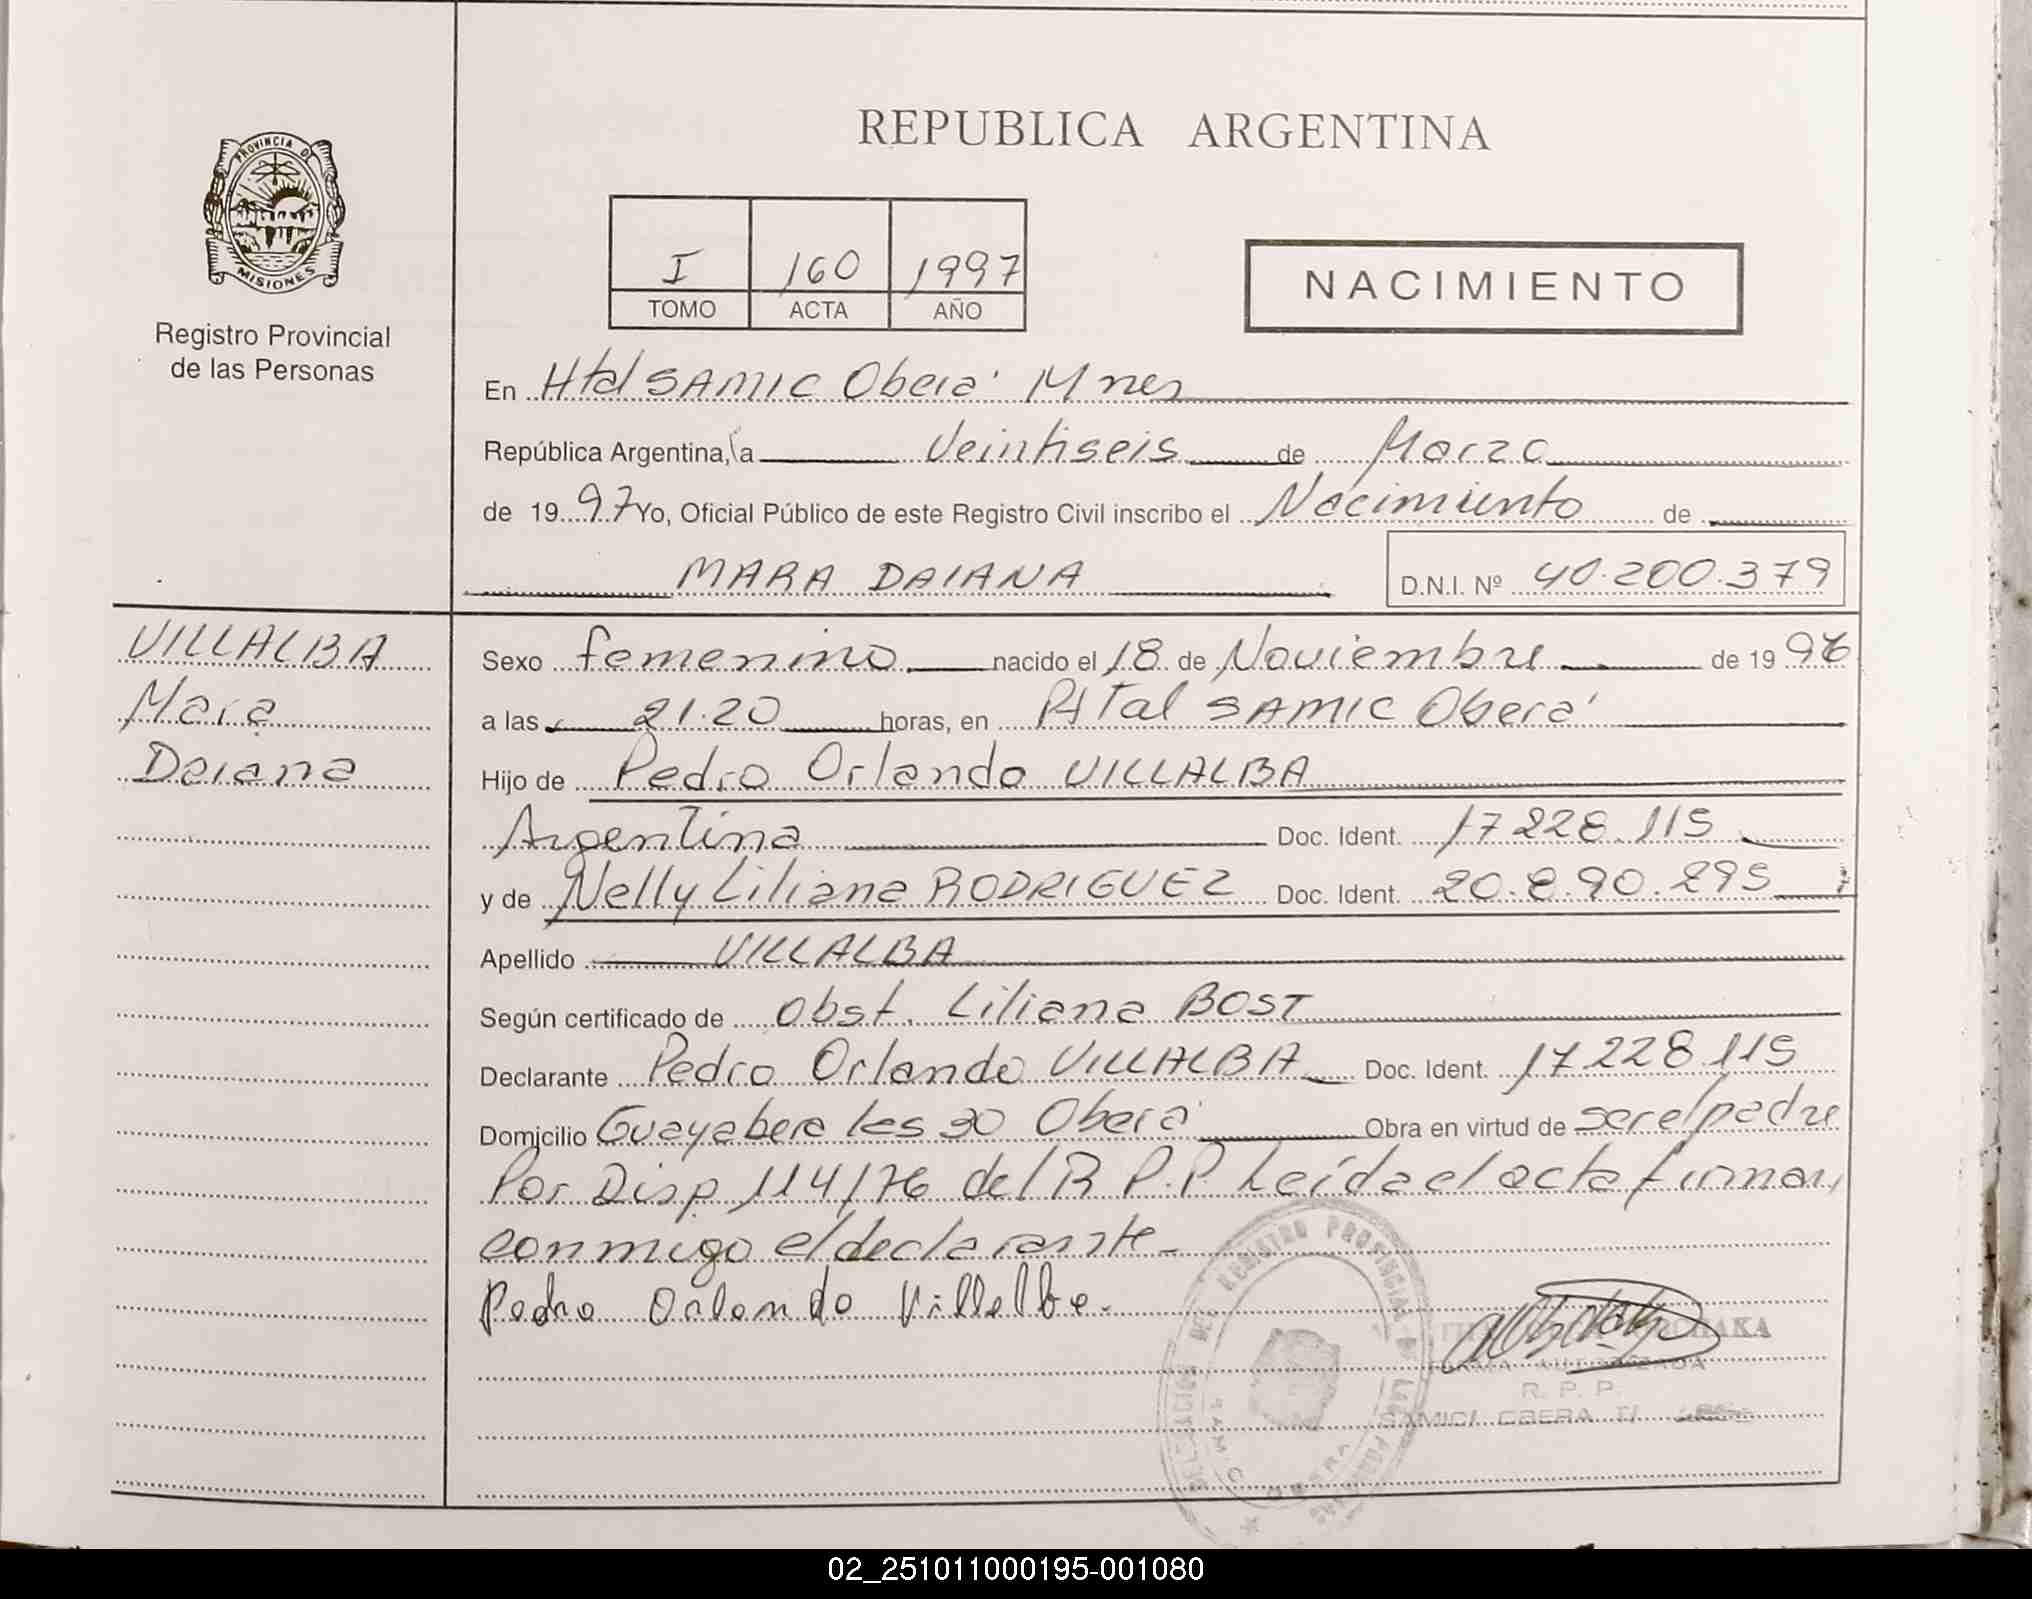 REPUBLICA ARGENTINA
PROVINCIA DE
MISIONES
Registro Provincial
de las Personas
I 160 1997
TOMO ACTA AÑO
NACIMIENTO
En Htal SAMIC Oberá Mnes
República Argentina, a Veintiseis de Marzo
de 1997 Yo, Oficial Público de este Registro Civil inscribo el Nacimiento de
MARA DAIANA D.N.I. Nº 40.200.379
VILLALBA
Mara
Daiana
Sexo femenino nacido el 18 de Noviembre de 1996
a las 21.20 horas, en Htal SAMIC Oberá
Hijo de Pedro Orlando VILLALBA
Argentina Doc. Ident. 17.228.115
y de Nelly Liliana RODRIGUEZ Doc. Ident. 20.890.295
Apellido VILLALBA
Según certificado de Obst. Liliana BOST
Declarante Pedro Orlando VILLALBA Doc. Ident. 17.228.115
Domicilio Guayabera Obera Obra en virtud de ser el padre
Por Disp 114/76 del R.P.P Leída el acta firman
conmigo el declarante
Pedro Orlando Villalba
REGISTRO PROVINCIAL DE LAS
R. P. P.
SAMIC OBERA
02_251011000195-001080